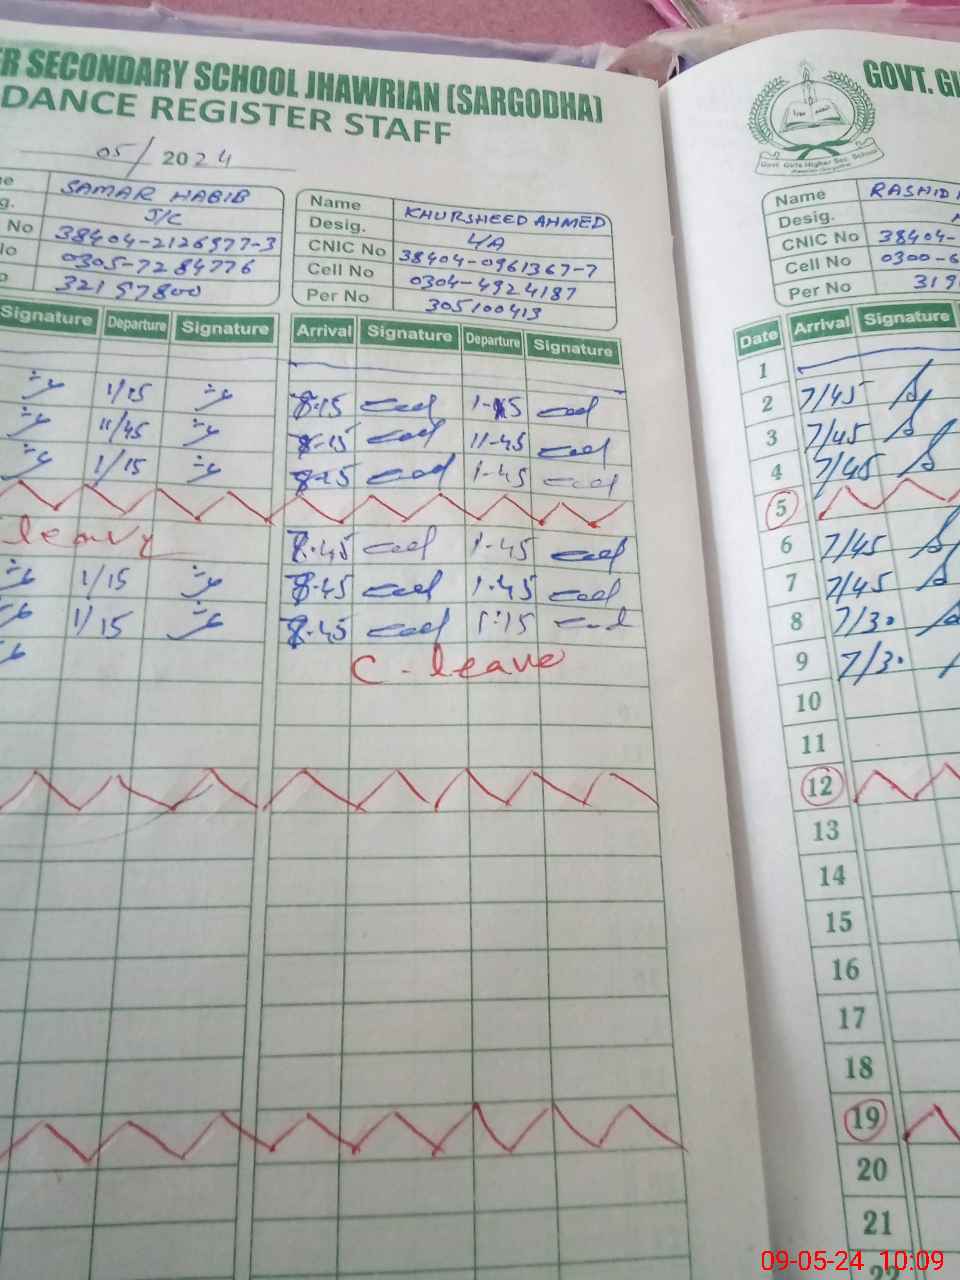 ER SECONDARY SCHOOL JHAWRIAN (SARGODHA)
DANCE REGISTER STAFF
05/2024
SAMAR HABIB
J/C
No 38404-2126977-3
0305-7284776
32157800
Name KHURSHEED AHMED
Desig. L/A
CNIC No 38404-0961367-7
Cell No 0304-4924187
Per No 305100413
Signature Departure Signature
Arrival Signature Departure Signature
1/15
11/45
1/15
leave
1/15
1/15
8-15 1-15
8-15 11-45
8-15 1-45
7.45 1-45
8.45 1.45
8.45 1:15
C-leave
GOVT. GI
Govt. Girls Higher Sec. School
Name RASHID
Desig.
CNIC No 38404-
Cell No 0300-6
Per No 319
Date Arrival Signature
1
2 7/45
3 7/45
4 7/45
5
6 7/45
7 7/45
8 7/30
9 7/30
10
11
12
13
14
15
16
17
18
19
20
21
09-05-24 10:09